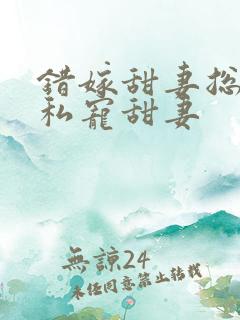 错嫁甜妻总
私宠甜妻
無諒24
未经同意禁止转载